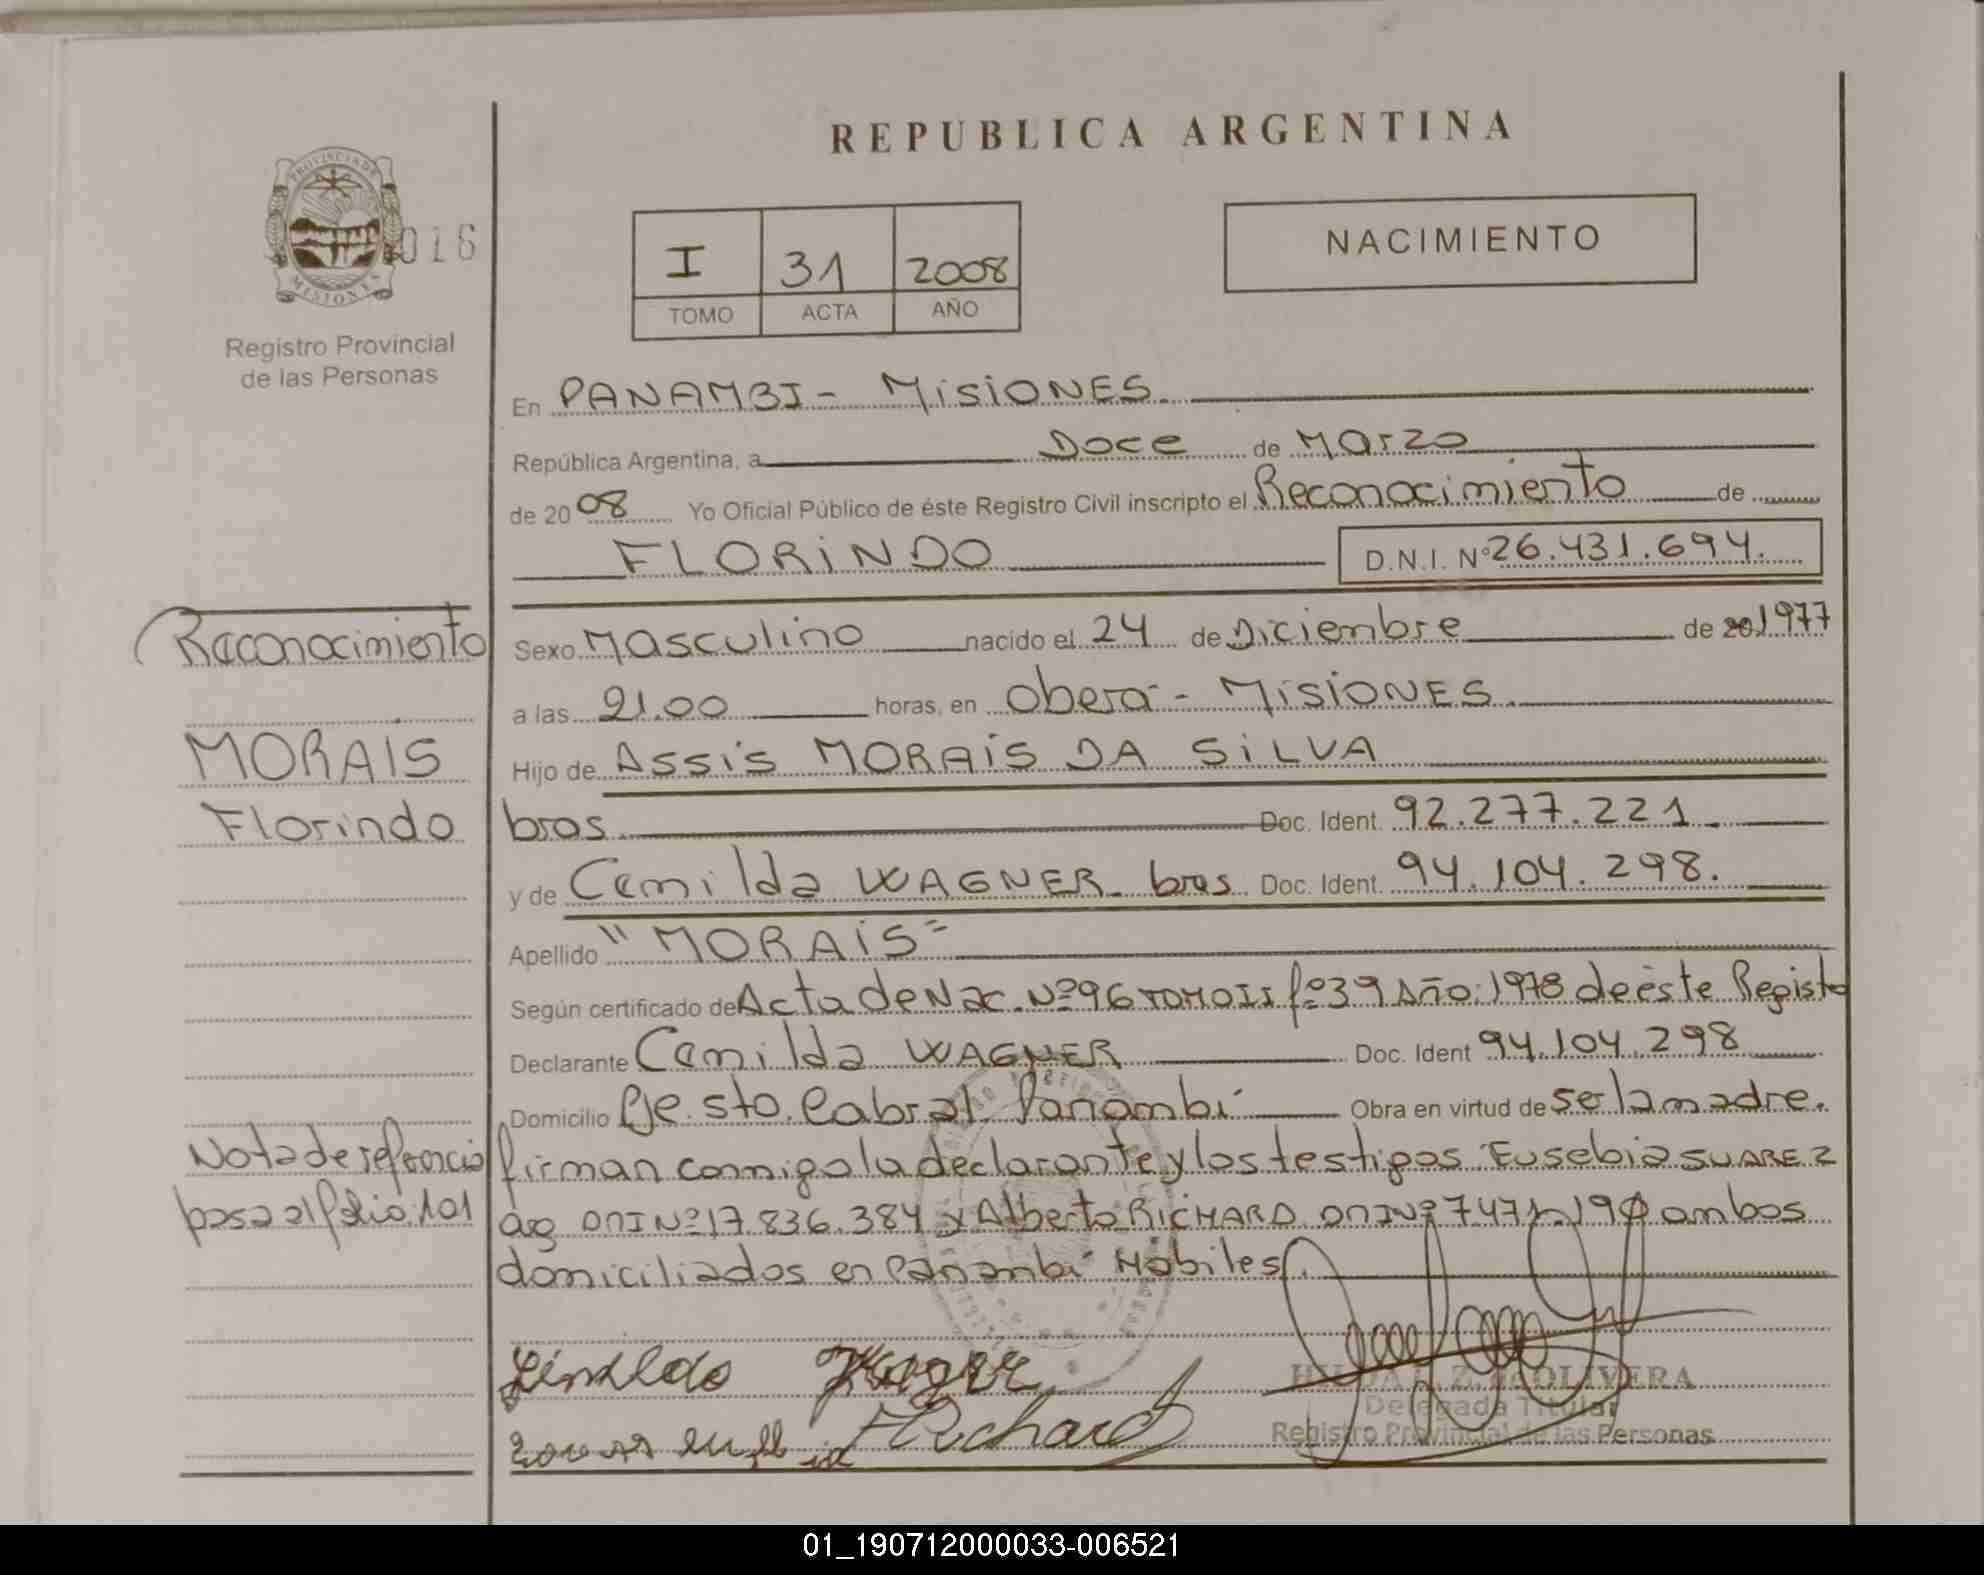 REPUBLICA ARGENTINA
PROVINCIA DE
MISIONES
016
Registro Provincial
de las Personas
I 31 2008
TOMO ACTA AÑO
NACIMIENTO
En PANAMBI - MISIONES
República Argentina, a Doce de Marzo
de 2008 Yo Oficial Público de éste Registro Civil inscripto el Reconocimiento de
FLORINDO D.N.I. Nº 26.431.694.
Reconocimiento
MORAIS
Florindo
Sexo Masculino nacido el 24 de Diciembre de 20 1977
a las 21.00 horas, en Oberá - MISIONES
Hijo de Assis MORAIS DA SILVA
bras Doc. Ident. 92.277.221
y de Cenilda WAGNER bras Doc. Ident. 94.104.298.
Apellido "MORAIS"
Según certificado de Acta de Nac. Nº 96 TOMO II fº 39 Año 1978 de éste Registro
Declarante Cenilda WAGNER Doc. Ident 94.104.298
Domicilio Pje. Sto. Cabral Panambí Obra en virtud de ser la madre.
Nota de referencia
pasa al folio 101
firman conmigo la declarante y los testigos Eusebia SUAREZ
arg DNI Nº 17.836.384 y Alberto RICHARD DNI Nº ambos
domiciliados en Panambí Hábiles.
Richard
OLIVERA
Delegada Titular
Registro Provincial de las Personas
01_190712000033-006521